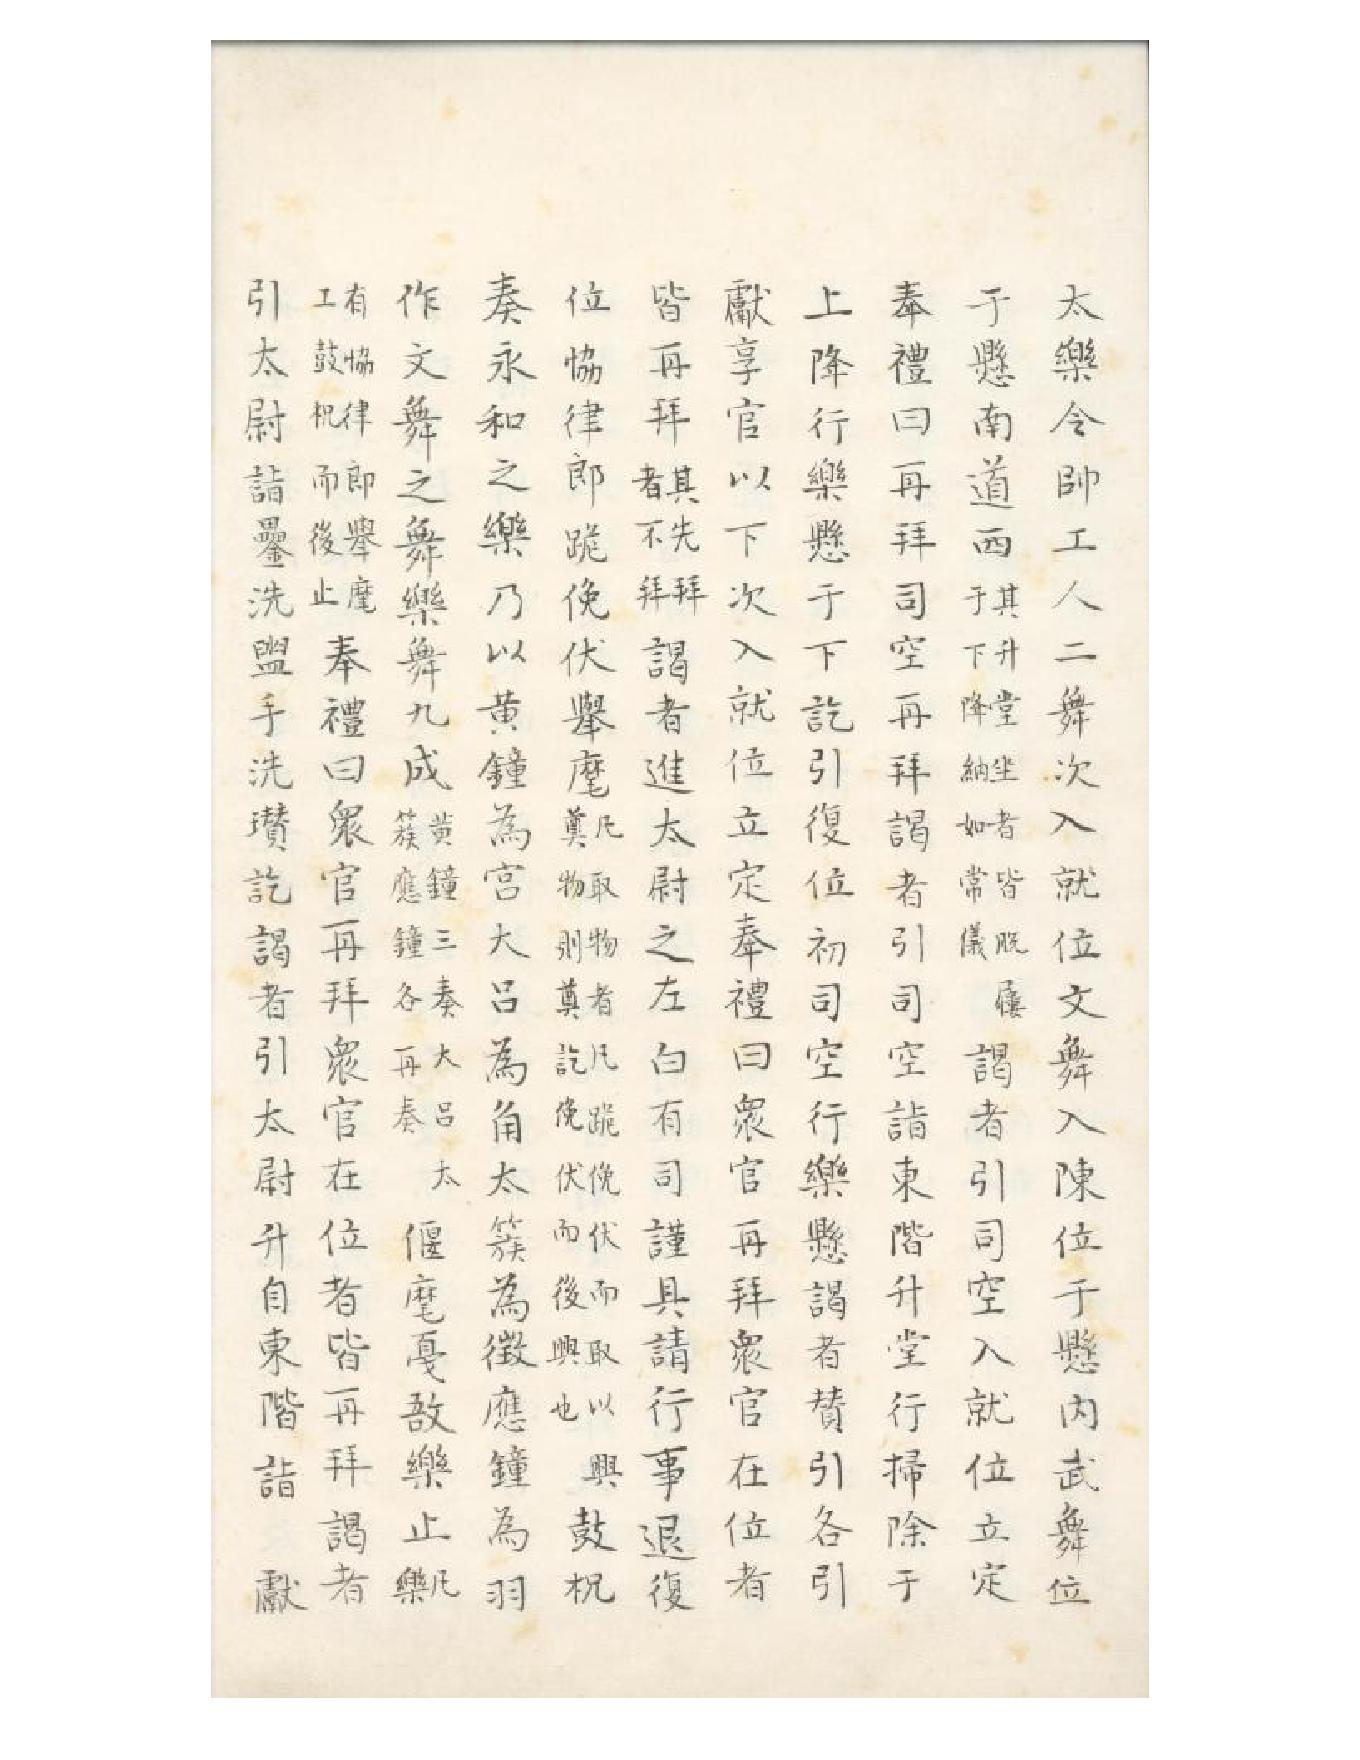 太樂令帥工人二舞次入就位文舞入陳位于懸内武舞位
于懸南道西其升堂坐者皆脱屨于下降納如常儀謁者引司空入就位立定
奉禮曰再拜司空再拜謁者引司空詣東階升堂行掃除于
上降行樂懸于下訖引復位初司空行樂懸謁者賛引各引
獻享官以下次入就位立定奉禮曰衆官再拜衆官在位者
皆再拜其先拜者不拜謁者進太尉之左白有司謹具請行事退復
位恊律郎跪俛伏舉麾凡取物者凡跪俛伏而取以興奠物則奠訖俛伏而後興也鼓柷
奏永和之樂乃以黄鐘為宫大吕為角太簇為徵應鐘為羽
作文舞之舞樂舞九成黄鐘三奏大吕太簇應鐘各再奏偃麾戞敔樂止凡樂
有恊律郎舉麾工鼓柷而後止奉禮曰衆官再拜衆官在位者皆再拜謁者
引太尉詣罍洗盥手洗瓚訖謁者引太尉升自東階詣 獻